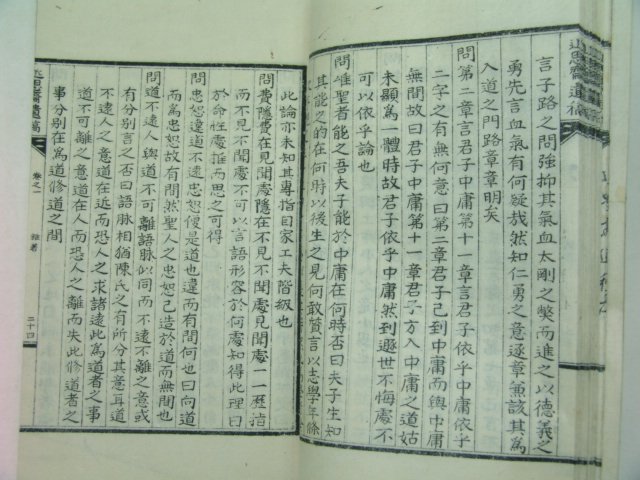 言子路之問強抑其氣血太剛之弊而進之以德義之
勇先言血氣有何疑哉然知仁勇之意逐章兼該其為
入道之門路章章明矣
問第二章言君子中庸第十一章言君子依乎中庸依乎
二字之有無何意曰第二章君子已到中庸而與中庸
無間故曰君子中庸第十一章君子方入中庸之道姑
未顯為一體時故君子依乎中庸然到遯世不悔處不
可以依乎論也
問唯聖者能之吾夫子能於中庸在何時否曰夫子生知
其能之的在何時以後生之見何敢贊言以志學年條
此論亦未知其專指自家工夫階級也
問費隱費在見聞處隱在不見不聞處見聞處一一歷指
而不見不聞處不可以言語形容於何處知得此理曰
於命性處推而思之可得
問忠恕違道不遠忠恕便是道也違而有間何也曰向道
而為忠恕故有間然聖人之忠恕已造於道而無間也
問道不遠人與道不可離語脉似同而不遠不離之意或
有分別言之否曰語脉相猶陳氏之有所分其意耳道
不遠人之意道在近而恐人之求諸遠此為道者之事
道不可離之意道在人而恐人之離而失此修道者之
事分別在為道修道之間
卷之一
雜著
二十四